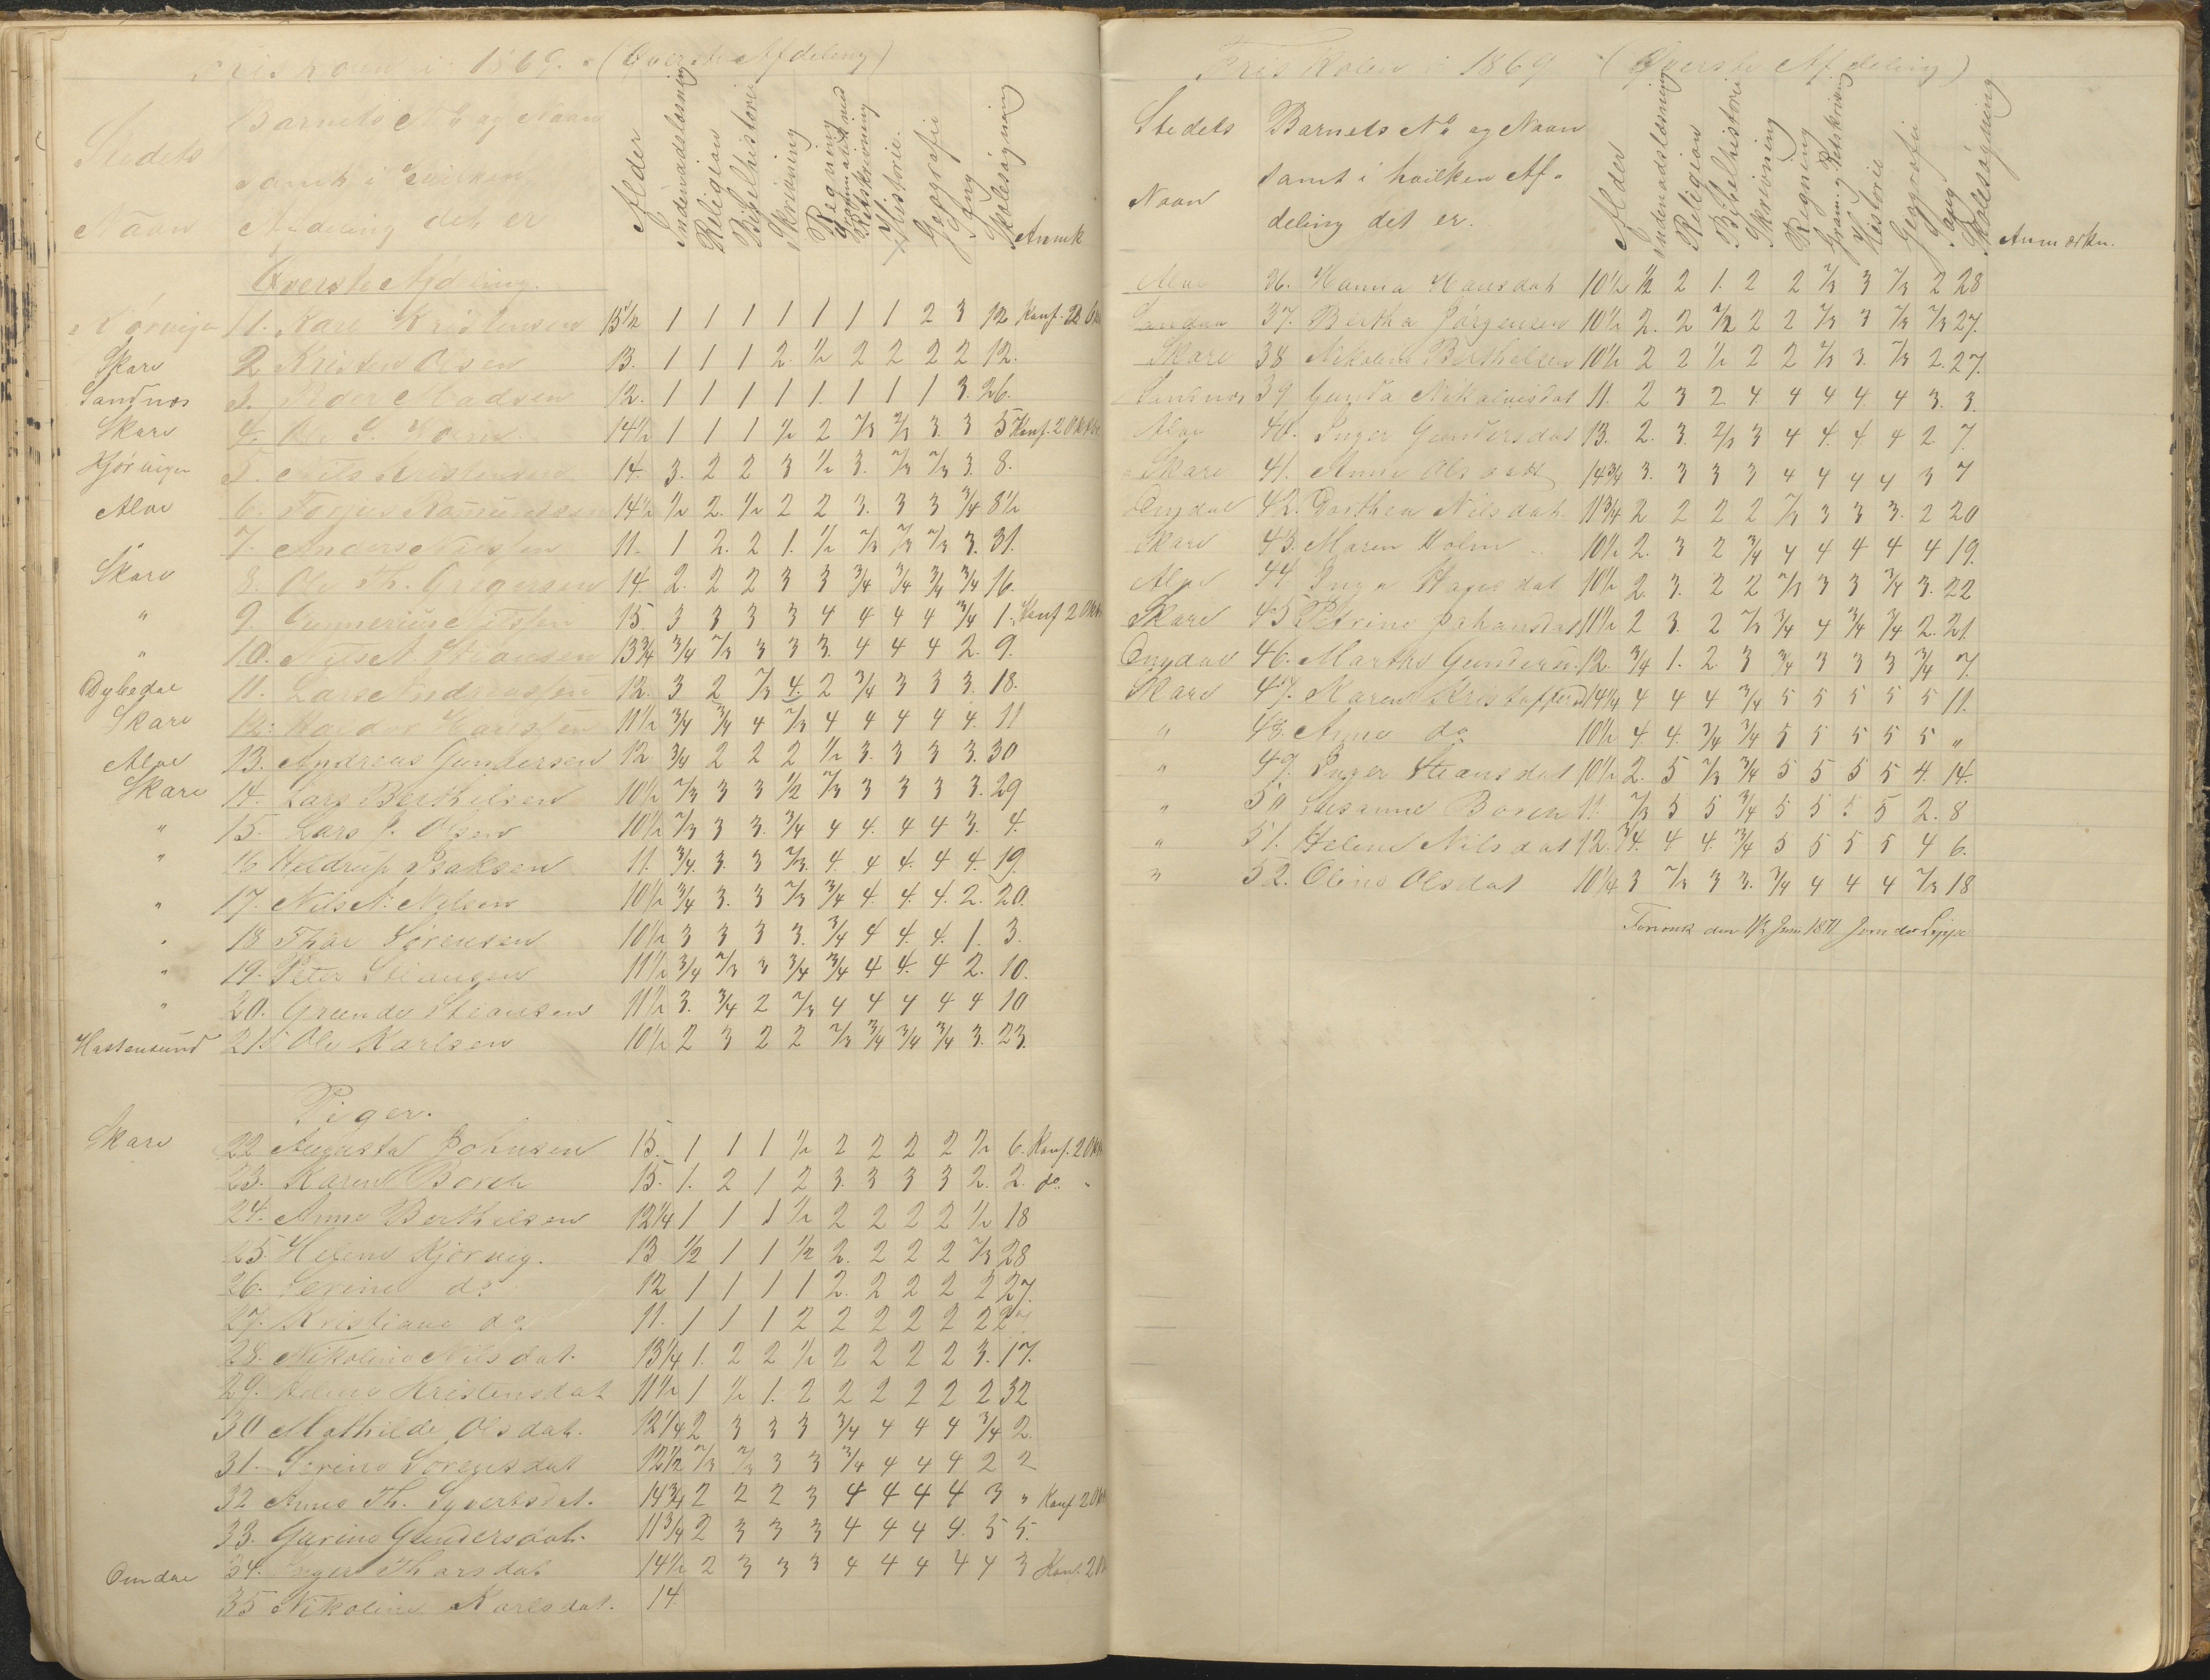 i 1869. (Øverste Afdeling)
Stedets Naavn
Barnets No og Naavn samt i hvilken Afdeling det er
Alder Indenadslæsning Religion Bibelhistorie Skrivning Regning Historie. Geografie Sang Skolesøgning Anmk
Øverste Afdeling.
1. Karl Kristensen 15 1/2 1 1 1 1 1 1 1 2 3 12 Konf. 2 Okt
Skare 2 Kristen Olsen 13. 1 1 1 2. 1/2 2 2 2 2 12.
Sandnes 3. Peder Madsen 12. 1 1 1 1 1 1 1 1 3. 26.
Skare 4. Ole G. Holm 14 1/2 1 1 1 1/2 2 2/3 2/3 3. 3 5 Konf. 2 Oktbr
Kjørvigen 5. Nils Kristensen 14. 3. 2 2 3 1/2 3. 2/3 2/3 3. 8.
Alve 6. Torjus Rasmundsen 14 1/2 1/2 2. 1/2 2 2 3. 3 3 3/4 8 1/2
" 7. Anders Nilssen 11. 1 2. 2 1. 1/2 2/3 2/3 2/3 3. 31.
Skare 8. Ole Th. Gregersen 14. 2. 2 2 3 3 3/4 3/4 3/4 3/4 16.
" 9. Gunnerius Nilssen 15. 3 3 3 3 4 4 4 4 3/4 1. Konf 2 Okt
" 10. Nils A. Stiansen 13 3/4 3/4 2/3 3 3 3. 4 4 4 2. 9.
Dybedal 11. Lars Andreassen 12. 3 2 2/3 4. 2 3/4 3 3 3. 18.
Skare 12. Haldor Hanssen 11 1/2 3/4 3/4 4 2/3 4 4 4 4 4. 11
Alve 13. Andreas Gundersen 12 3/4 2 2 2 1/2 3. 3 3 3. 30
Skare 14. Lars Berthelsen 10 1/2 2/3 3 3 1/2 2/3 3 3 3 3. 29
" 15. Lars J. Olsen 10 1/2 2/3 3 3. 3/4 4 4. 4 4 3. 4.
" 16 Isaksen 11. 3/4. 3. 3 2/3. 4. 4 4. 4 4. 19.
" 17. Nils N. Nilsen 10 1/2 3/4 3. 3 2/3 3/4 4. 4. 4. 2. 20.
" 18 Thor Sørensen 10 1/2 3 3 3 3. 3/4 4 4. 4. 1. 3.
" 19. Peter Stiansen 11 1/2 3/4 2/3 3 3/4 3/4 4 4. 4 2. 10.
" 20. Stiansen 11 1/2 3. 3/4 2 2/3 4 4 4 4 4 10
Hastensund 21. Ole Karlsen 10 1/2 2 3 2 2 2/3 3/4 3/4 3/4 3. 23.
Piger.
Skare 22 Augusta Johnsen 15. 1 1 1 1/2 2 2 2 2 1/2 6. Konf. 2 Okt
23. Karen Borch 15. 1. 2 1 2 3. 3 3 3 2. 2. do. "
24. Anne Berthelsen 12 1/4 1 1 1 1/2 2 2 2 2 1/2 18
25. Helene Kjørvig. 13 1/2 1 1 1/2 2. 2 2 2 2/3 28
26. Serine do 12 1 1 1 1 2. 2 2 2 2 27.
27. Kristiane do 11. 1 1 1 2 2 2 2 2 2 27
28. Nikoline Nilsdat. 13 1/4 1. 2 2 1/2 2 2 2 2 3. 17.
29. Helene Kristensdat 11 1/2 1 1/2 1. 2 2 2 2 2 2 32
30 Mathilde Olsdat. 12 1/4 2 3 3 3 3/4 4 4 4 3/4 2.
31. Serine Sørensdat 12 1/2 2/3 2/3 3 3 3/4 4 4 4 2 2
32 Anne Th. Syvertsdat. 14 3/4 2 2 2 3 4 4 4 4 3 " Konf. 2 Okt
33. Gurine Gundersdat. 11 3/4 2 3 3 3 4 4 4 4. 5 5.
Omdal 34. Inger Tharsdat 14 1/2 2 3 3 3 4 4 4 4 4 3 Konf. 2 Okt
35 Nikoline Karlsdat. 14.
Friskolen i 1869 (Øverste Afdeling)
Stedets Naavn
Barnets No og Naavn samt i hvilken Afdeling det er.
Alder Indenadslæsning Religion Bibelhistorie Skrivning Regning Gram. og Retskrivning Historie Geografie Sang Skolesøgning Anmærkn.
Alve 36. Hanna Hansdat 10 1/2 1/2 2 1. 2 2 2/3 3 2/3 2 28
37. Bertha Jørgensen 10 1/2 2. 2 1/2 2 2 2/3 3 2/3 2/3 27.
Skare 38 Nikoline Berthelsen 10 1/2 2 2 1/2 2 2 2/3 3. 2/3 2. 27.
Sandnes 39 Gunda Nikolaisdat 11. 2 3 2. 4 4 4 4. 4 3. 3.
Alve 40. Inger Gundersdat 13. 2. 3. 2/3 3 4 4. 4 4 2. 7.
Skare 41. Anne Olsdatt 14 3/4 3. 3 3 3 4 4 4 4 3 7
Omdal 42. Dorthea Nilsdat. 11 3/4 2 2 2 2 2/3 3 3 3. 2 20
Skare 43. Maren Holm 10 1/2 2. 3 2 3/4 4 4 4 4 4 19.
Alve 44 Inga Hansdat 10 1/2 2. 3. 2 2 2/3 3 3 3/4 3. 22
Skare 45 Petrine Johansdat 11 1/2 2 3. 2 2/3 3/4 4 3/4 3/4 2. 21.
Omdal 46. Marthe Gunders. 12. 3/4 1. 2. 3 3/4 3 3 3 3/4 7.
Skare 47. Karen Kristoffersd 14 1/4 4 4 4 3/4 5 5 5 5 5 11.
" 48. Anne do 10 1/2 4. 4. 3/4 3/4 5 5 5 5 5 "
" 49. Inger Stiansdat 10 1/2 2. 5 2/3 3/4 5 5 5 5 4. 14.
" 50 Susanne Borch 11. 2/3 5 5 3/4 5 5 5 5 2. 8
" 51. Helene Nilsdat 12. 3/4. 4 4. 3/4 5 5 5 5 4 6.
" 52. Oline Olsdat 10 1/4 3 2/3 3 3. 3/4 4 4 4 2/3 18
den Juni 1871 Jom der Lippe